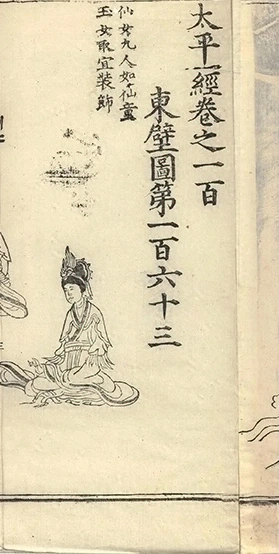 太平經卷之一百
東壁圖第一百六十三
仙女九人如仙童
玉女取宜裝飾